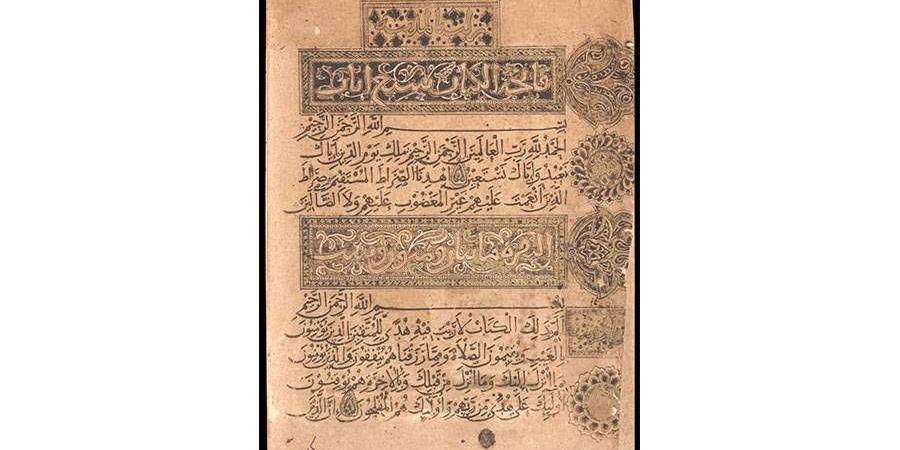 فاتحة الكتاب سبع ايات
بِسْمِ اللهِ الرَّحْمٰنِ الرَّحِيمِ
الحَمْدُ لِلَّهِ رَبِّ العَالَمِينَ الرَّحْمٰنِ الرَّحِيمِ مَلِكِ يَوْمِ الدِّينِ اِيَّاكَ
نَعْبُدُ وَاِيَّاكَ نَسْتَعِينُ اِهْدِنَا الصِّرَاطَ المُسْتَقِيمَ صِرَاطَ
الَّذِينَ اَنْعَمْتَ عَلَيْهِمْ غَيْرِ المَغْضُوبِ عَلَيْهِمْ وَلَا الضَّالِّينَ
البقرة مائتان
بِسْمِ اللهِ الرَّحْمٰنِ الرَّحِيمِ
الم ذَلِكَ الكِتَابُ لَا رَيْبَ فِيهِ هُدًى لِلْمُتَّقِينَ الَّذِينَ يُؤْمِنُونَ
بِالْغَيْبِ وَيُقِيمُونَ الصَّلَاةَ وَمِمَّا رَزَقْنَاهُمْ يُنْفِقُونَ وَالَّذِينَ يُؤْمِنُونَ
بِمَا اُنْزِلَ اِلَيْكَ وَمَا اُنْزِلَ مِنْ قَبْلِكَ وَبِالْاٰخِرَةِ هُمْ يُوقِنُونَ
اُولٰئِكَ عَلَى هُدًى مِنْ رَبِّهِمْ وَاُولٰئِكَ هُمُ المُفْلِحُونَ اِنَّ الَّذِينَ